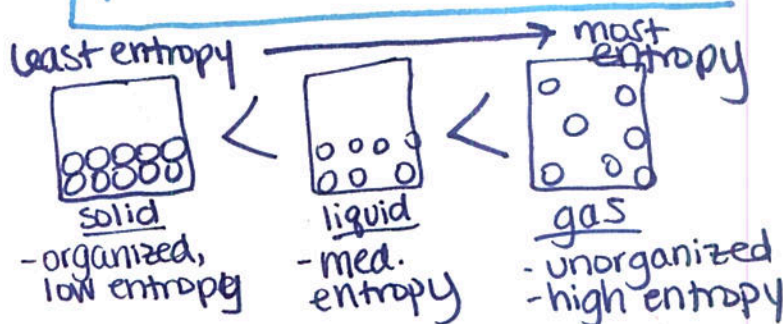 least entropy
most
entropy
<
<
solid
-organized,
low entropy
liquid
-med.
entropy
gas
- unorganized
-high entropy